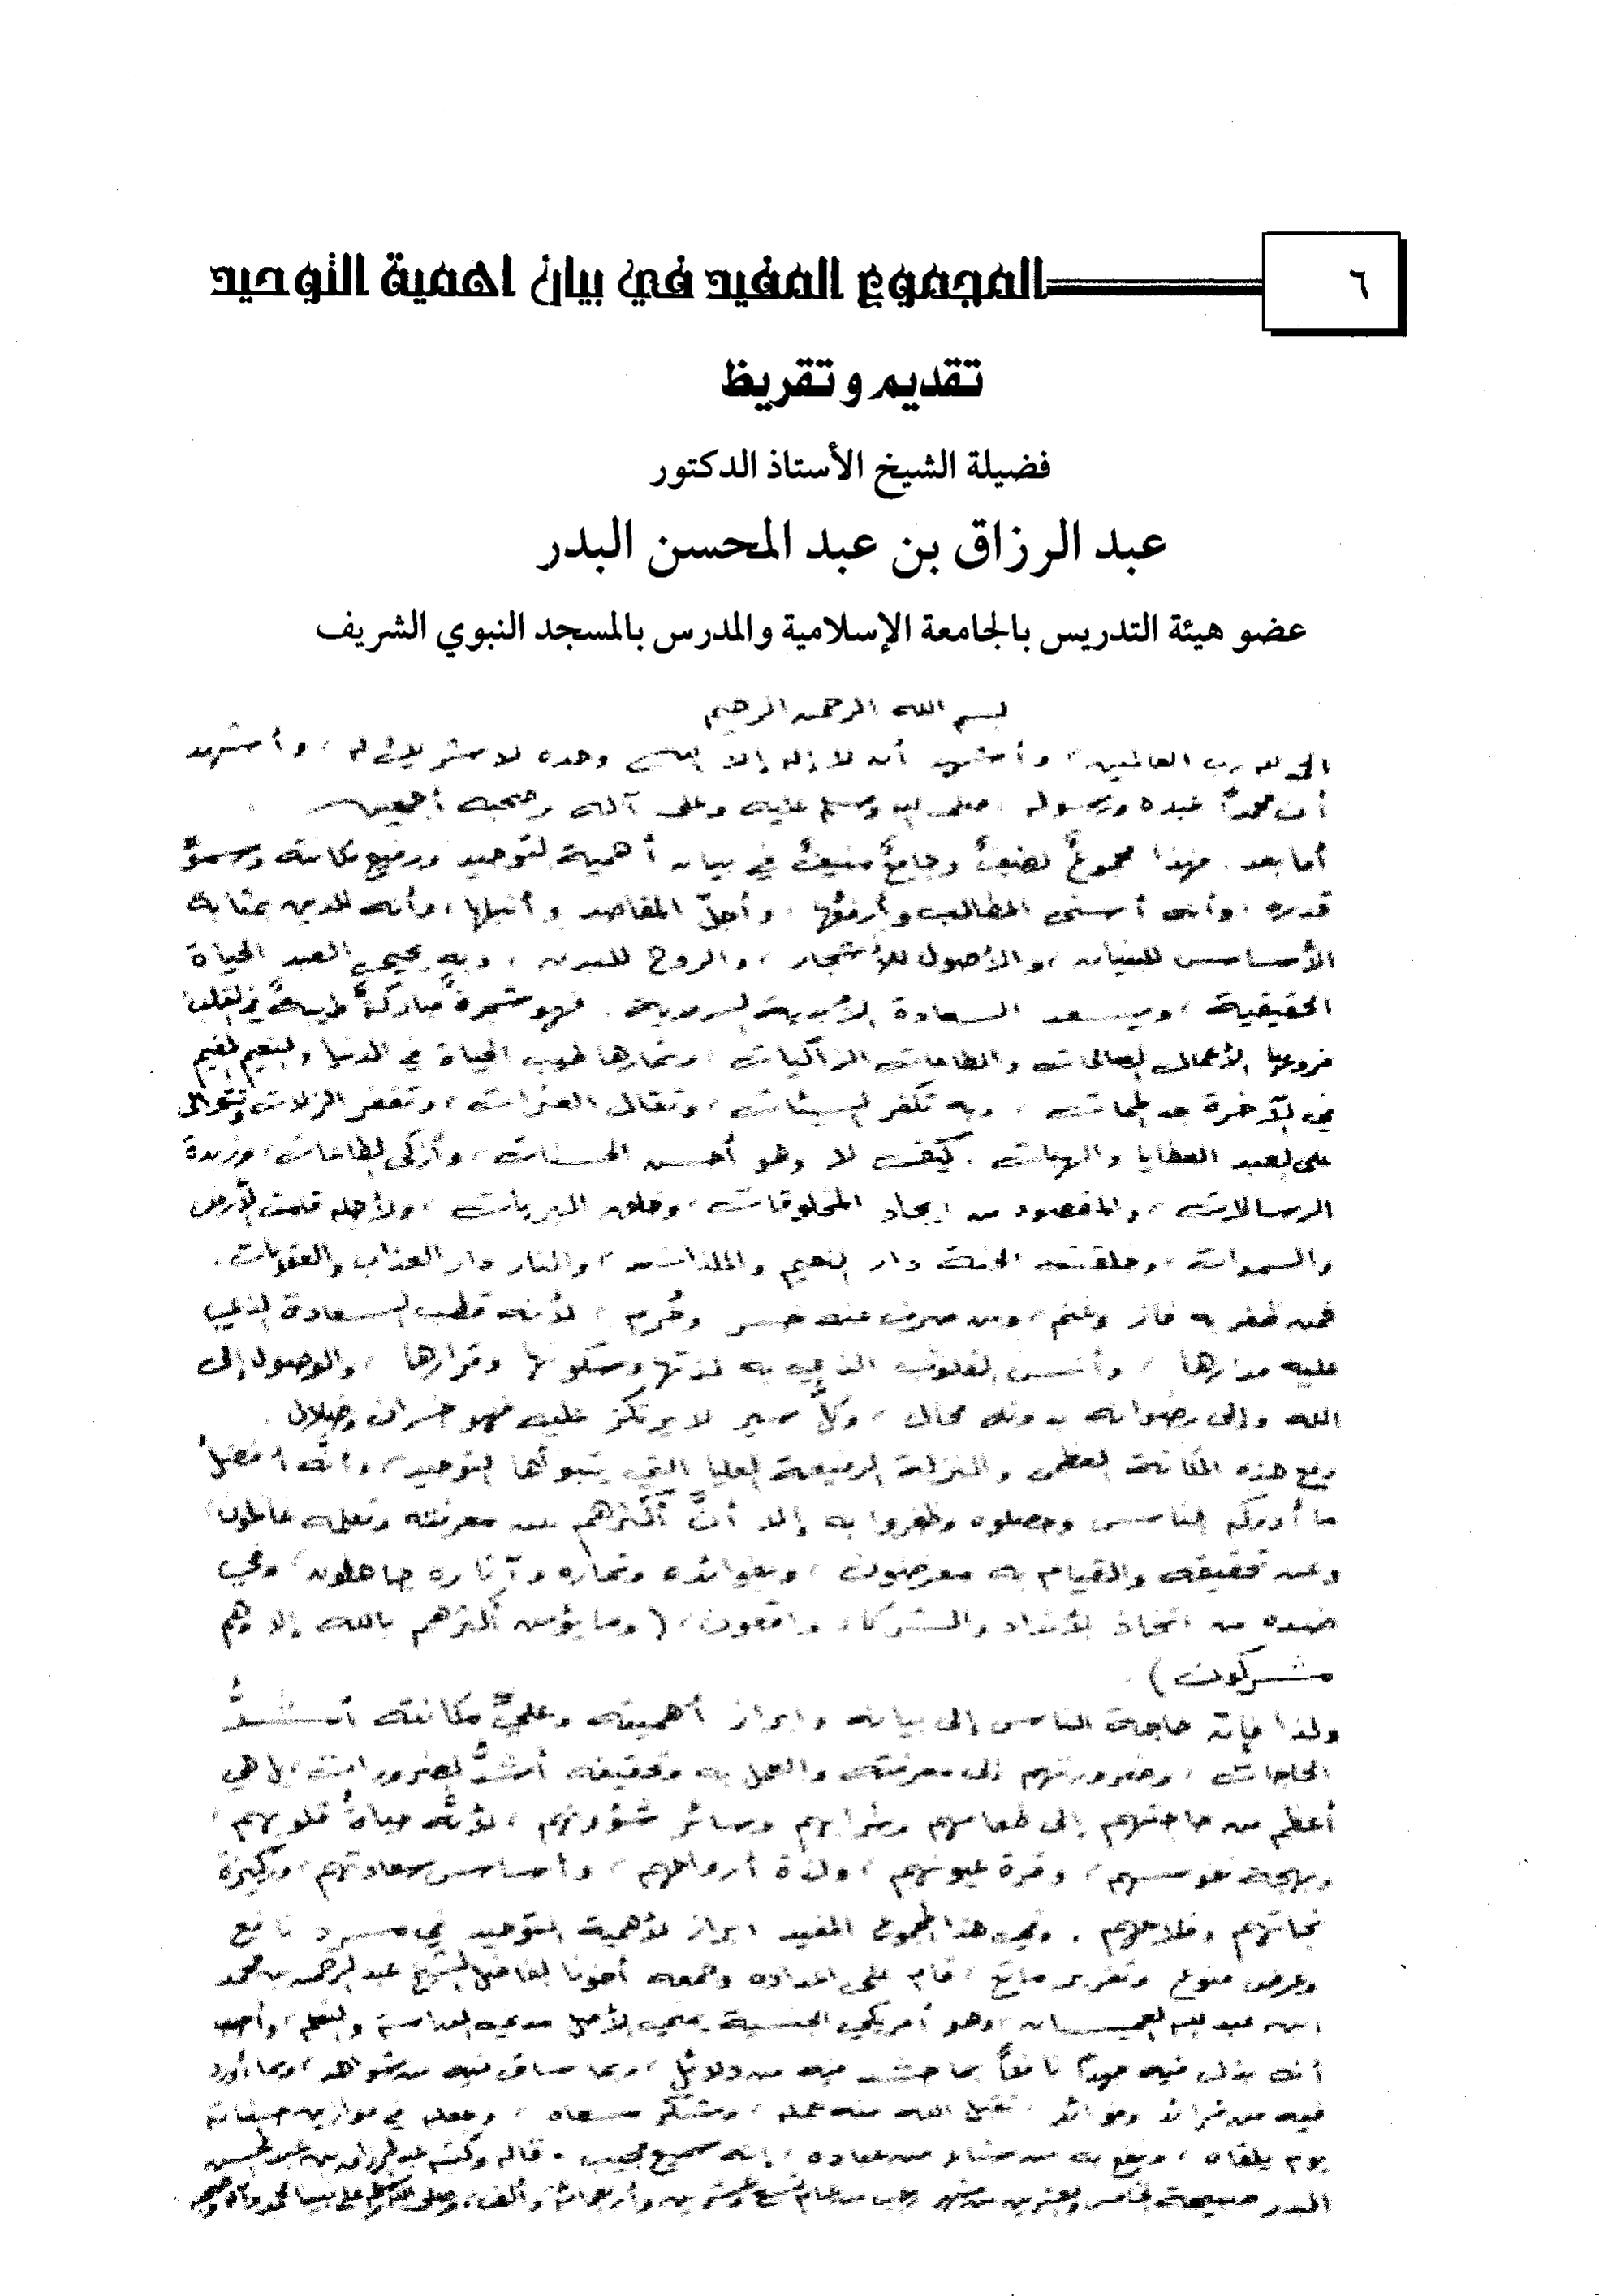 ٦
المجموع المفيد في بيان اهمية التوحيد
تقديم وتقريظ
فضيلة الشيخ الأستاذ الدكتور
عبد الرزاق بن عبد المحسن البدر
عضو هيئة التدريس بالجامعة الإسلامية والمدرس بالمسجد النبوي الشريف
بسم الله الرحمن الرحيم
الحمد لله رب العالمين، وأشهد أن لا إله إلا الله وحده لا شريك له، وأشهد
أن محمداً عبده ورسوله، صلى الله وسلم عليه وعلى آله وصحبه أجمعين
أما بعد. فهذا مجموعٌ لطيفٌ وجامعٌ منيفٌ في بيان أهمية التوحيد ورفيع مكانته وسموِّ
قدره، وأنه أسنى المطالب وأرفعُها، وأجلّ المقاصد وأنبلها، وأنه للدين بمثابة
الأساس للبنيان، والأصول للأشجار، والروح للبدن، وبه يحيى العبد الحياة
الحقيقية، ويسعد السعادة الأبدية السرمدية. فهو شجرةٌ مباركةٌ طيبةٌ في القلب
فروعها الأعمال الصالحات والطاعات الزاكيات، وثمارها طيب الحياة في الدنيا والنعيم المقيم
في الآخرة بعد الممات، وبه تكفر السيئات، وتقال العثرات، وتغفر الزلات وتتوالى
على العبد العطايا والهبات. كيف لا وهو أحسن الحسنات، وأزكى الطاعات، وزبدة
الرسالات، والمقصود من إيجاد المخلوقات، وخلق البريات، ولأجله قامت الأرض
والسموات، وخلقت الجنة دار النعيم والملذات، والنار دار العذاب والعقوبات.
فمن ظفر به فاز وغنم، ومن صرف عنه خسر وحُرم، لأنه قطب السعادة الذي
عليه مدارها، وأنس القلوب الذي به لذتها وسكونها وقرارها، والوصول إلى
الله وإلى رضوانه بدونه محال، وكلُّ سير لا يرتكز عليه فهو خسران وضلال.
ومع هذه المكانة العظمى والمنزلة الرفيعة العليا التي يتبوأها التوحيد، وأنَّه أفضلُ
ما أدركه الناس وحصلوه وظفروا به إلا أنَّ أكثرهم عن معرفته وتعلمه غافلون،
وعن تحقيقه والقيام به معرضون، وبفوائده وثماره وآثاره جاهلون، وفي
ضده من اتخاذ الأنداد والشركاء واقعون، (وما يؤمن أكثرهم بالله إلا وهم
مشركون).
ولذا فإن حاجة الناس إلى بيانه وإبراز أهميته وعليِّ مكانته أشدُّ
الحاجات، وضرورتهم إلى معرفته والعمل به وتحقيقه أشدُّ الضرورات، بل هي
أعظم من حاجتهم إلى طعامهم وشرابهم وسائر شؤونهم، لأنَّه حياةُ قلوبهم،
وبهجة نفوسهم، وقرة عيونهم، ولذة أرواحهم، وأساس سعادتهم، وركيزة
نجاتهم وفلاحهم. وفي هذا المجموع المفيد إبراز لأهمية التوحيد في سرد نافع
وعرض منوع وتقرير ماتع، قام على إعداده وجمعه أخونا الفاضل الشيخ عبد الرحمن بن محمد
ابن عبد الله، وهو أمريكي الجنسية الأصل
أنه بذل فيه جهداً نافعاً بما حشد فيه من دلائل، وبما ساق فيه من شواهد، وبما أورد
فيه من فرائد وفوائد، تقبل الله منه عمله، وشكر مسعاه، وجعله في موازين حسناته
يوم يلقاه، ونفع به من شاء من عباده، إنه سميع مجيب. قاله وكتبه عبد الرزاق بن عبد المحسن
البدر صبيحة الخامس والعشرين من شهر رجب من عام وأربعمائة وألف، وصلى الله وسلم على نبينا محمد وآله وصحبه